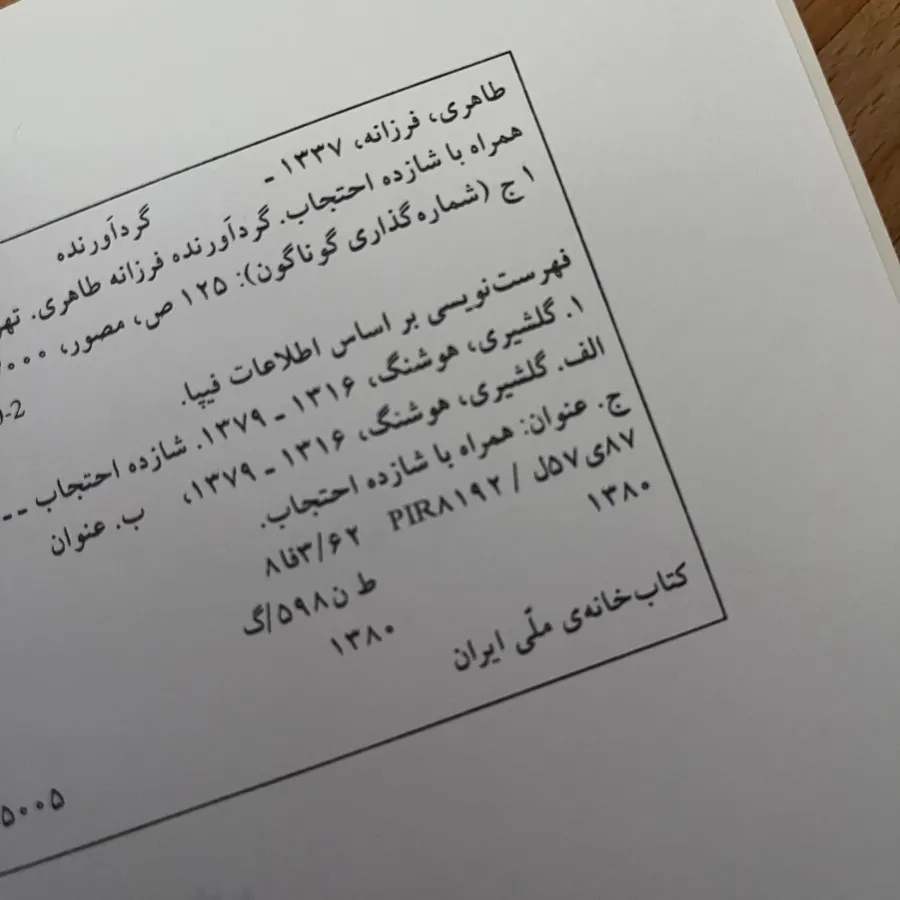 طاهری، فرزانه، ۱۳۳۷ ـ
گردآورنده
همراه با شازده احتجاب. گردآورنده فرزانه طاهری.
۱ ج (شماره‌گذاری گوناگون): ۱۲۵ ص، مصور،
0-2
فهرست‌نویسی بر اساس اطلاعات فیپا.
۱. گلشیری، هوشنگ، ۱۳۱۶ ـ ۱۳۷۹. شازده احتجاب ـ ـ
الف. گلشیری، هوشنگ، ۱۳۱۶ ـ ۱۳۷۹، ب. عنوان
ج. عنوان: همراه با شازده احتجاب.
۸۷ی۵۷ل / PIR۸۱۹۲ ۸فا۳/۶۲
۱۳۸۰ ط ن۵۹۸/گ
۱۳۸۰
کتاب‌خانه‌ی ملّی ایران
۵۰۰۵